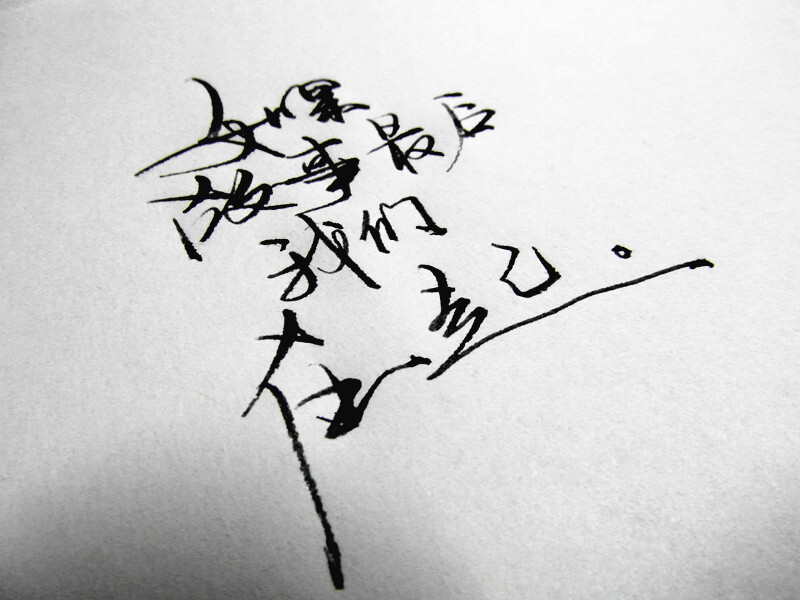 如果
故事最后
我们
在一起。